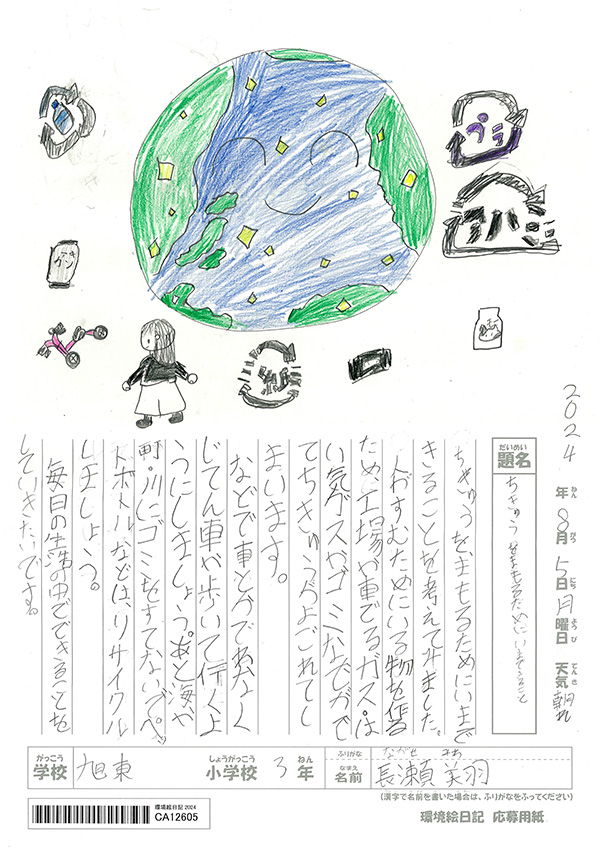 プラ
アルミ
2024年8月5日月曜日 天気 晴れ
ねん がつ にち ようび てんき
だいめい
題名
ちきゅうをまもるためにいまできること
ちきゅうを、まもるためにいまで
きることを考えてみました。
人がすむためにいる物を作る
ために工場や車でるガス、は
い気ガスやゴミなでがで
てちきゅうがよごれてし
まいます。
などで車とかでわなく
じてん車や歩いて行くよ
うにしましょう。あと海や
町・川にゴミをすてないで、ペッ
トボトルなどは、リサイクル
しましょう。
毎日の生活の中でできることを
していきたいです。
がっこう しょうがっこう ねん
学校 旭東 小学校 3年
ふりがな ながせ みう
なまえ
名前 長瀬 美羽
(漢字で名前を書いた場合は、ふりがなをふってください)
環境絵日記2024
CA12605
環境絵日記 応募用紙